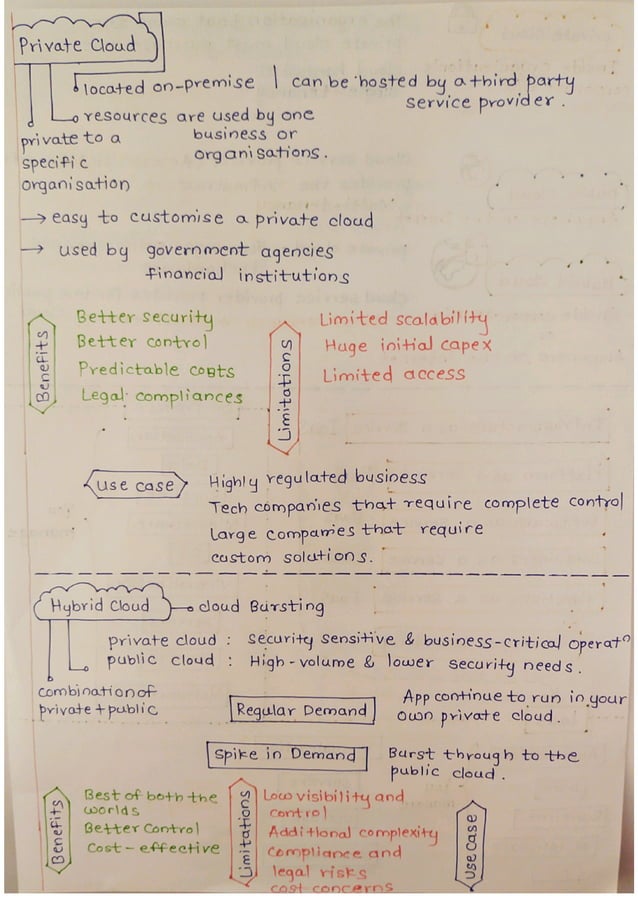 Private Cloud
located on-premise | can be hosted by a third party
service provider.
resources are used by one
business or
organisations.
private to a
specific
organisation
→ easy to customise a private cloud
→ used by government agencies
financial institutions
Benefits
Better security
Better control
Predictable costs
Legal compliances
Limitations
Limited scalability
Huge initial capex
Limited access
use case
Highly regulated business
Tech companies that require complete control
Large companies that require
custom solutions.
Hybrid Cloud
cloud Bursting
private cloud : security sensitive & business-critical operatⁿ
public cloud : High-volume & lower security needs.
combination of
private + public
Regular Demand
App continue to run in your
own private cloud.
Spike in Demand
Burst through to the
public cloud.
Benefits
Best of both the
worlds
Better Control
Cost-effective
Limitations
Low visibility and
control
Additional complexity
Compliance and
legal risks
cost concerns
Use Case